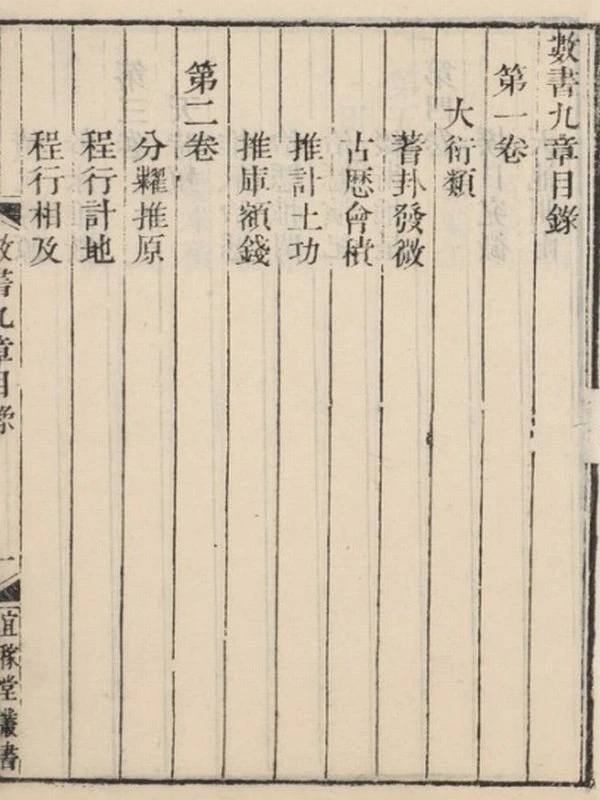 數書九章目錄
第一卷
大衍類
蓍卦發微
古歷會積
推計土功
推庫額錢
第二卷
分糶推原
程行計地
程行相及
數書九章目錄
一
宜稼堂叢書